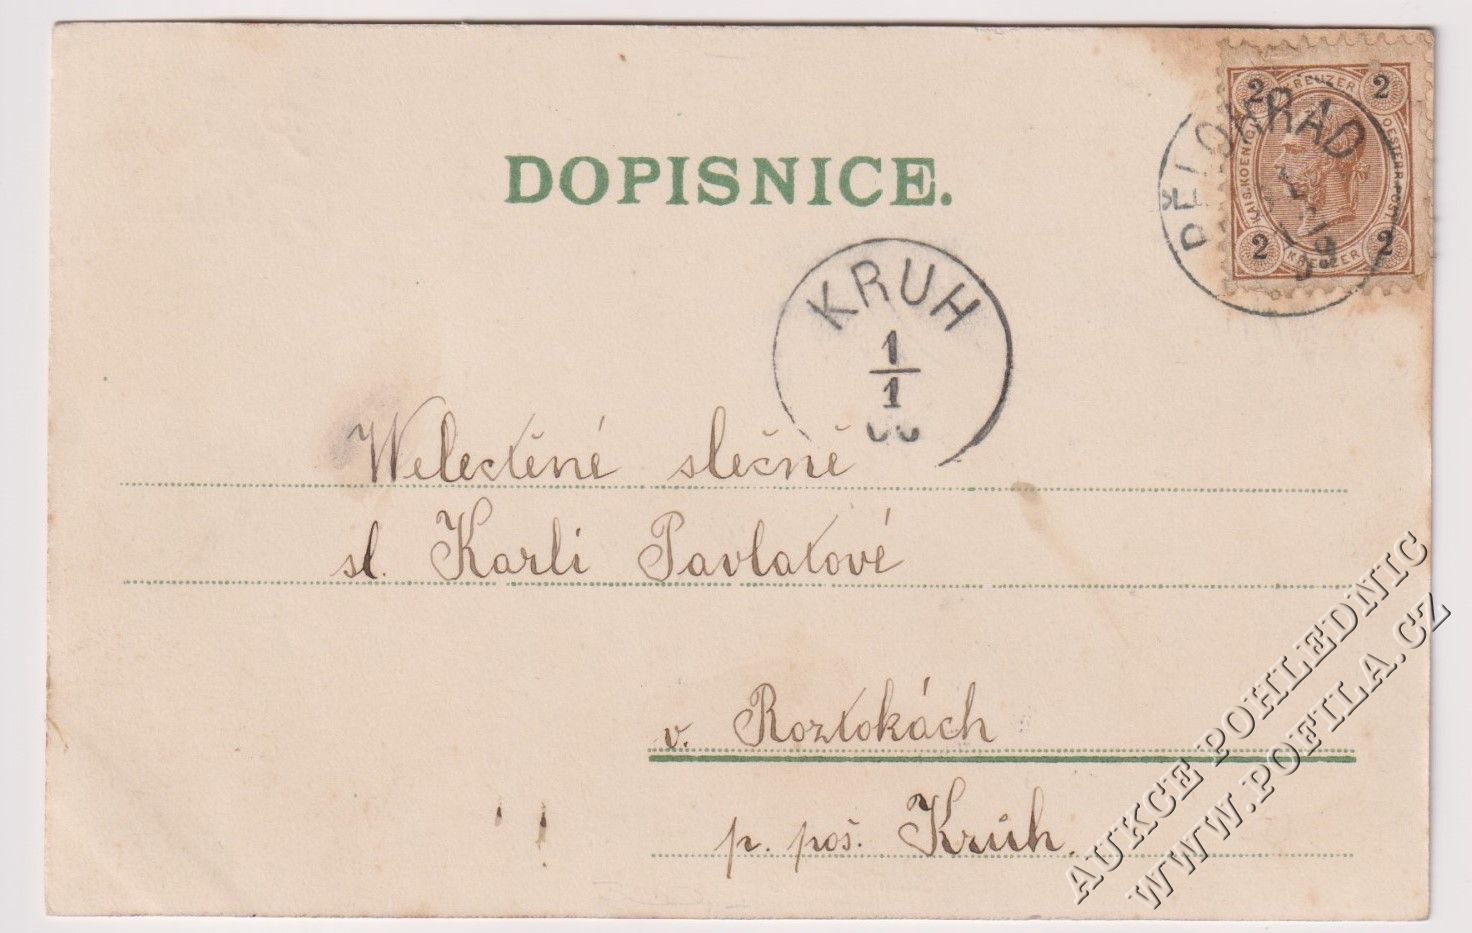 DOPISNICE.
BĚLOHRAD
2 KREUZER 2
KAIS. KOENIGL. OESTERR. POST
2 KREUZER 2
KRUH
1
1
Welectěné slečně
sl. Karli Pavlatové
v. Roztokách
p. poš. Krůh.
AUKCE POHLEDNIC
WWW.POFILA.CZ